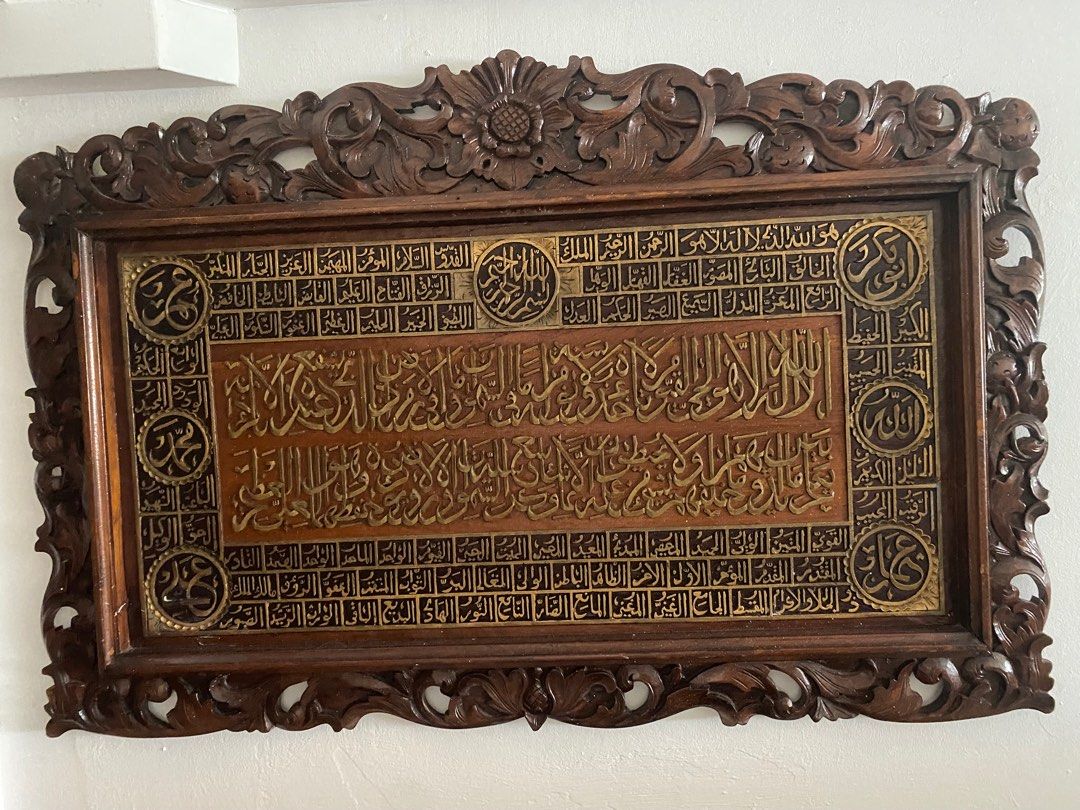 هو الله الذي لا إله إلا هو الرحمن الرحيم الملك
القدوس السلام المؤمن المهيمن العزيز الجبار المتكبر
بسم الله الرحمن الرحيم
ابو بكر
عمر
الخالق البارئ المصور الغفار القهار الوهاب
الرزاق الفتاح العليم القابض الباسط الخافض
الرافع المعز المذل السميع البصير الحكم العدل
اللطيف الخبير الحليم العظيم الغفور الشكور العلي
الكبير الحفيظ
المقيت الحسيب
الجليل الكريم
الرقيب المجيب
الواسع الحكيم
الودود المجيد
الباعث الشهيد
الحق الوكيل
الله
محمد
الله لا إله إلا هو الحي القيوم لا تأخذه سنة ولا نوم له ما في السموات وما في الأرض من ذا الذي يشفع عنده إلا بإذنه
يعلم ما بين أيديهم وما خلفهم ولا يحيطون بشيء من علمه إلا بما شاء وسع كرسيه السموات والأرض ولا يؤوده حفظهما وهو العلي العظيم
القوي المتين الولي الحميد المحصي المبدئ المعيد المحيي المميت الحي القيوم الواجد الماجد الواحد الصمد القادر
المقتدر المقدم المؤخر الأول الآخر الظاهر الباطن الوالي المتعال البر التواب المنتقم العفو الرؤوف مالك الملك
ذو الجلال والإكرام المقسط الجامع الغني المغني المانع الضار النافع النور الهادي البديع الباقي الوارث الرشيد الصبور
عثمان